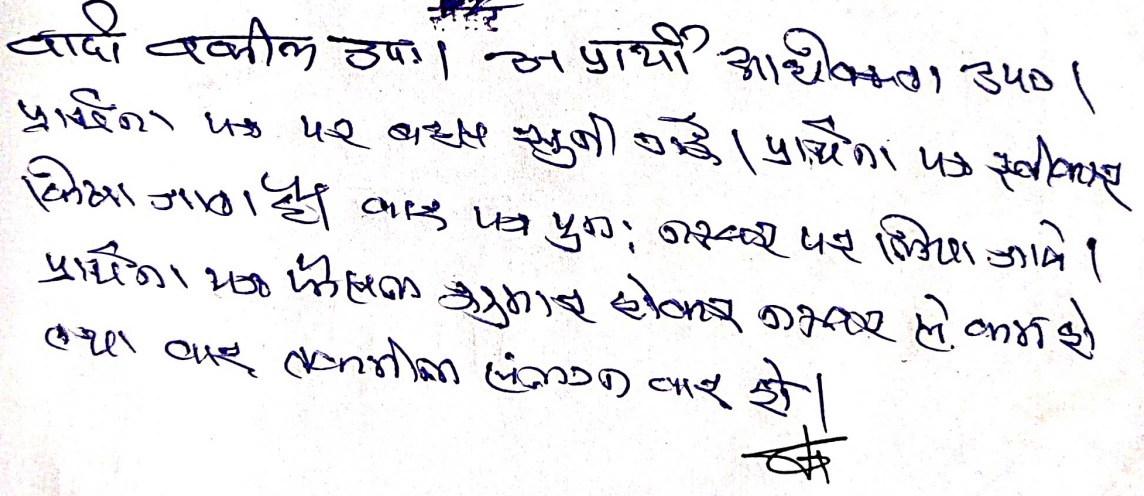 वादी वकील उप०। अप्रार्थी अधिवक्ता उप०।
प्रार्थना पत्र पर बहस सुनी गई। प्रार्थना पत्र स्वीकार
किया जाता है। वाद पत्र पुनः नम्बर पर लिया जावे।
प्रार्थना पत्र फैसल शुमार होकर नम्बर से कम हो
तथा वाद तकमील संलग्न वाद हो।